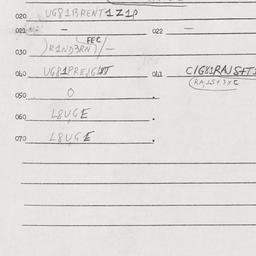 020 UG81BRENT1Z1P
021 – 022 —
FEC
030 )R1NDBRN)/—
040 UG81PREIGHT 041 C/G81RAJS+T1
(RAJS+3YC
050 0 .
060 L8UGE .
070 L8UGE .